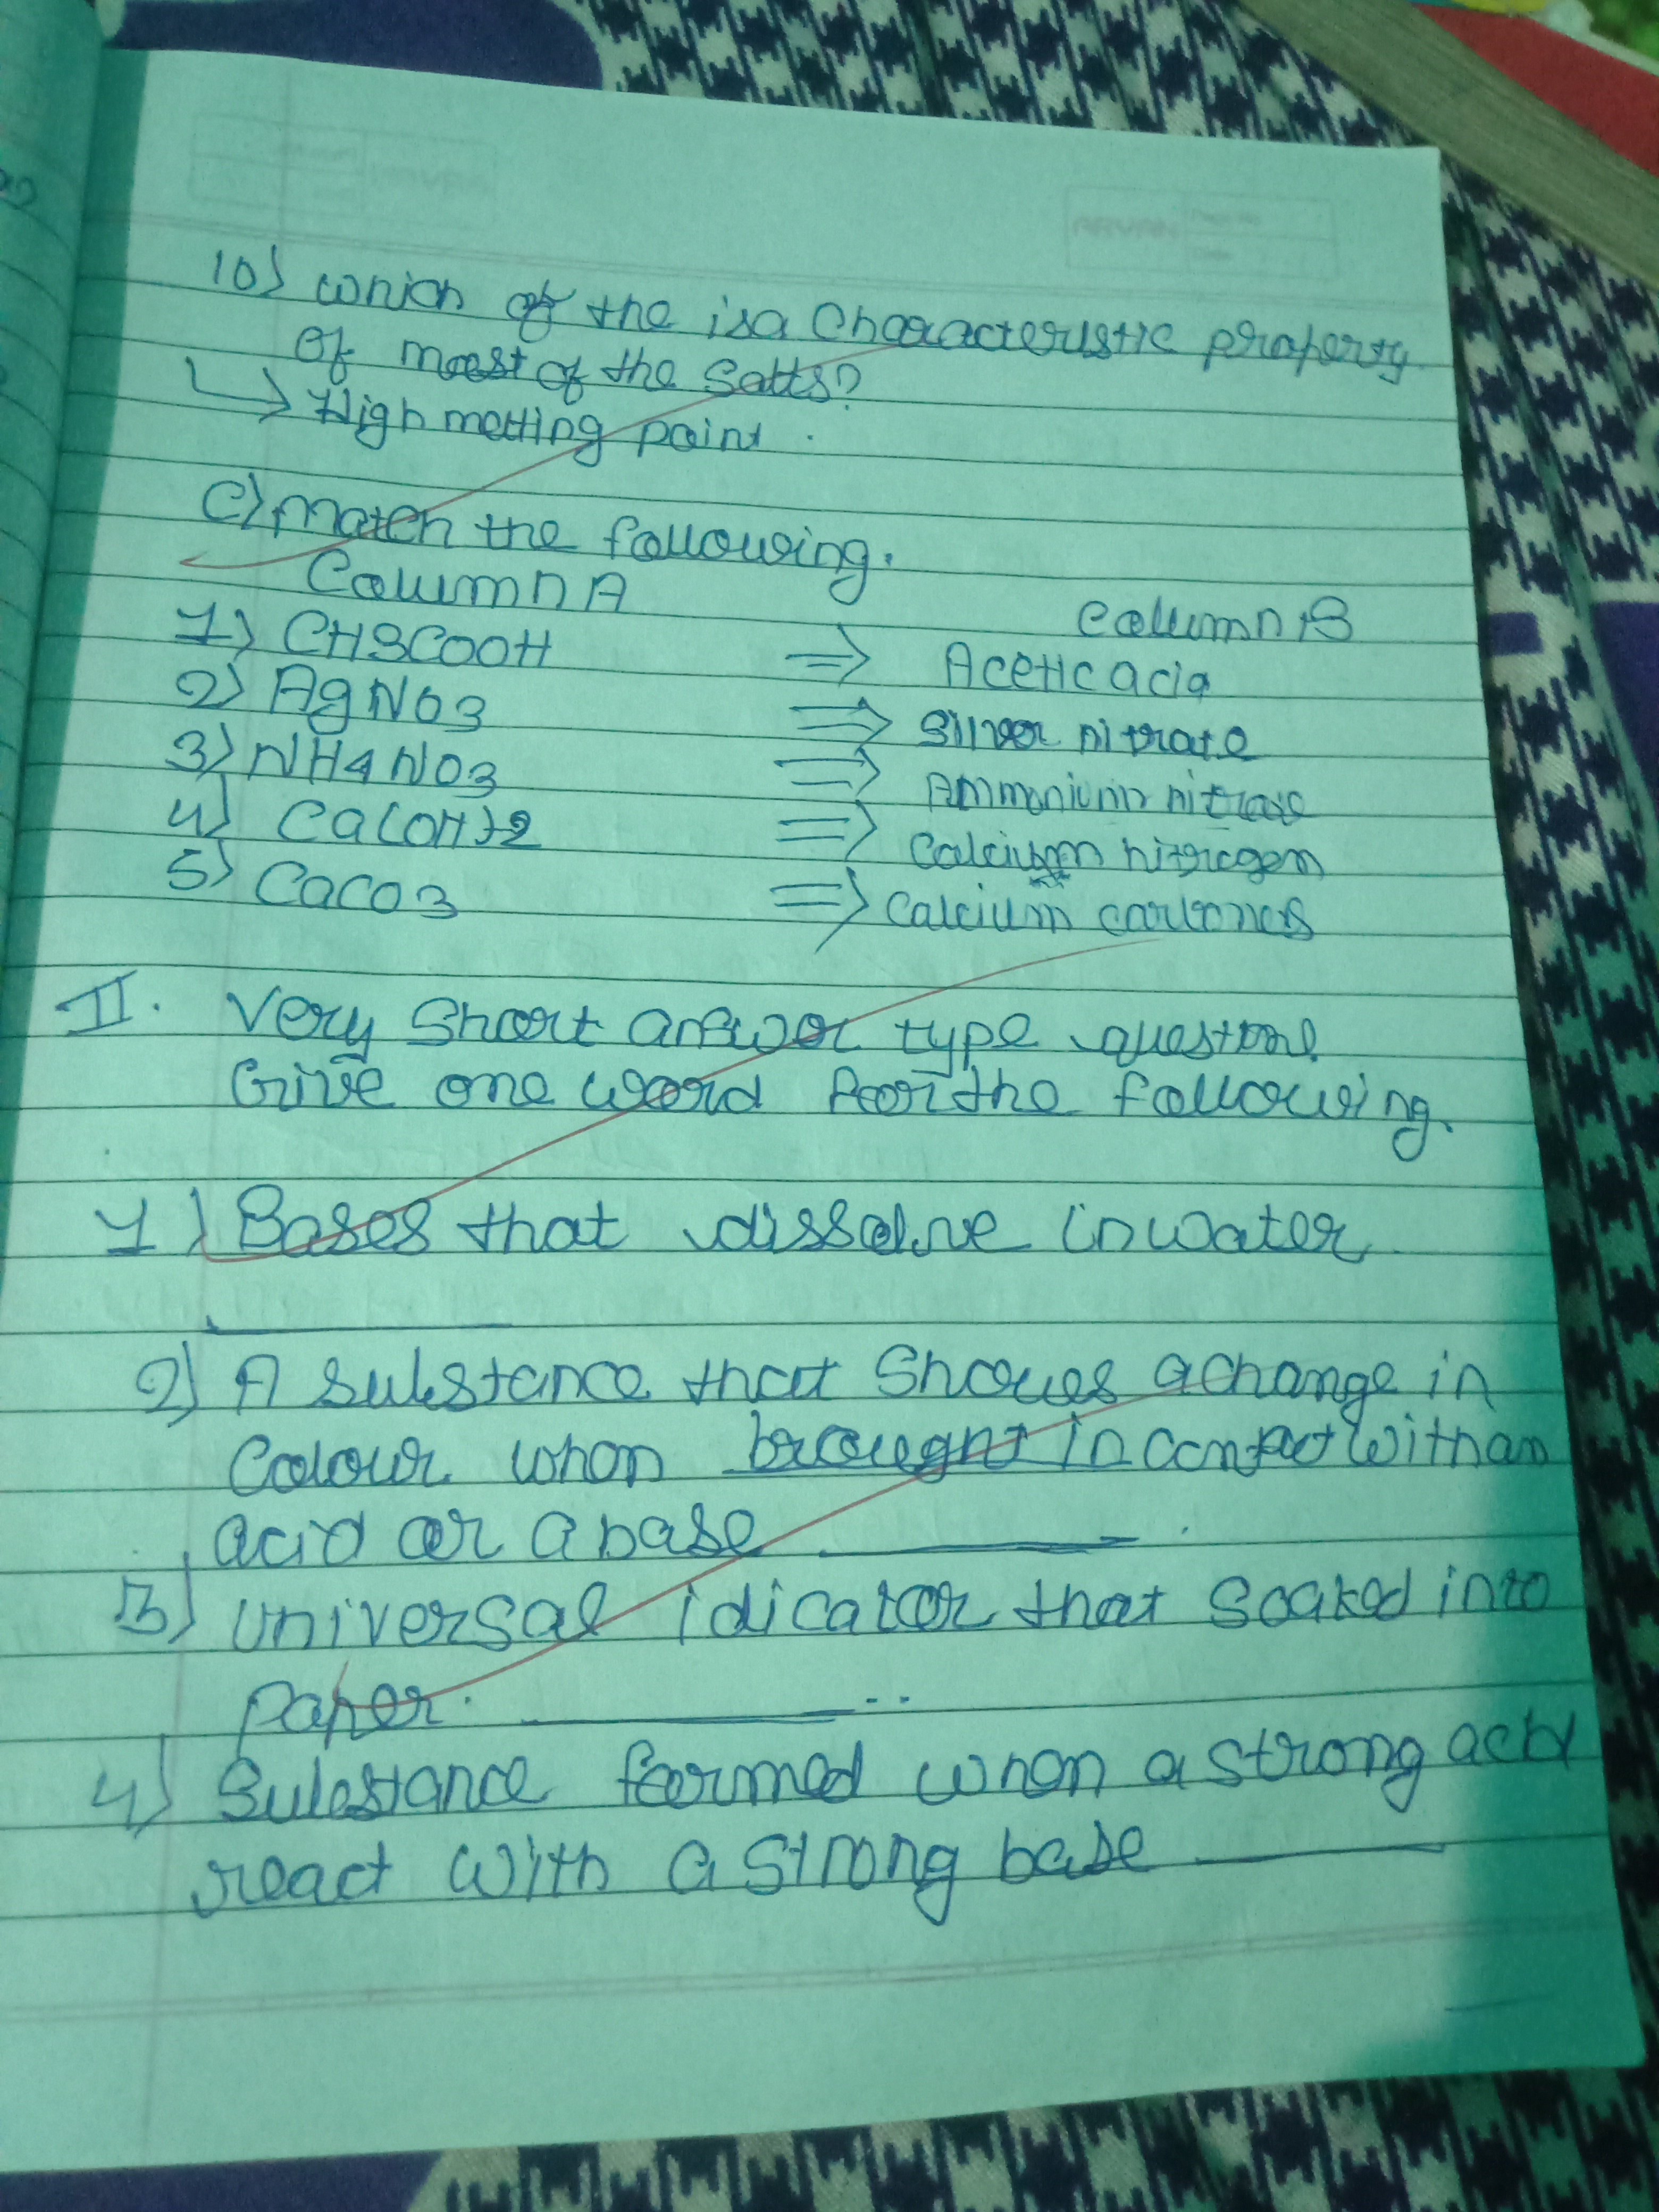 10) which of the is a Characteristic property
of most of the Salts?
↳ High melting point.
C) Match the following.
Column A
Column B
1) CH3COOH ⇒ Acetic acid
2) AgNO3 ⇒ Silver nitrate
3) NH4NO3 ⇒ Ammonium nitrate
4) Ca(OH)2 ⇒ Calcium nitrogen
5) CaCO3 ⇒ Calcium
II. Very Short answer type question.
Give one word for the following.
1) Bases that dissolve in water
2) A substance that Shows a change in
Colour when brought in contact with an
acid or a base ______.
3) universal idicator that soaked into
paper. ______..
4) Substance formed when a strong acid
react with a strong base ______